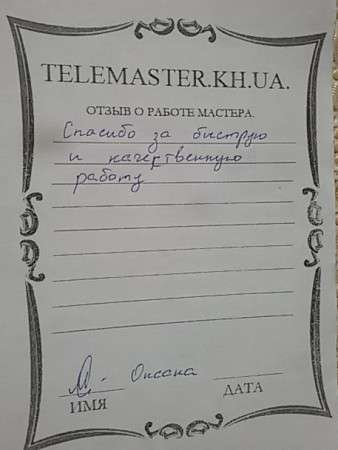 TELEMASTER.KH.UA.
ОТЗЫВ О РАБОТЕ МАСТЕРА.
Спасибо за быструю
и качественную
работу
Оксана
ИМЯ
ДАТА